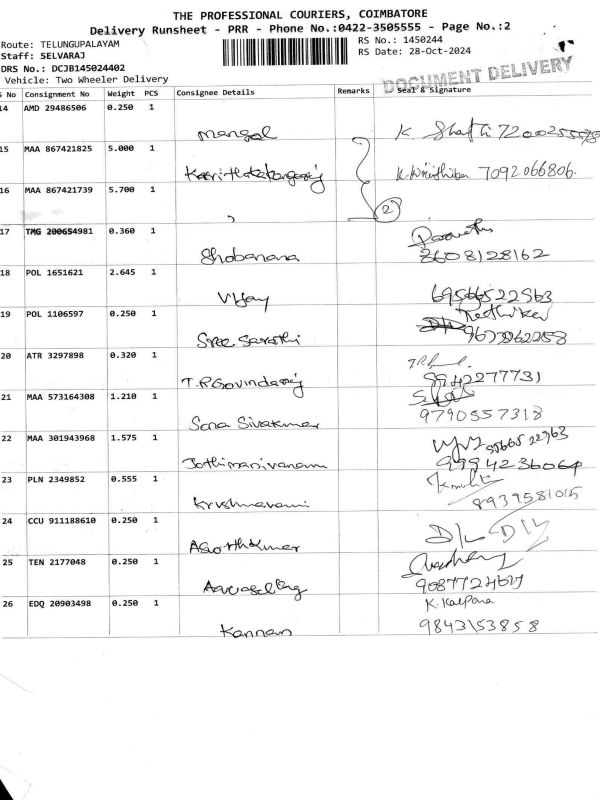 THE PROFESSIONAL COURIERS, COIMBATORE
Delivery Runsheet - PRR - Phone No.:0422-3505555 - Page No.:2
Route: TELUNGUPALAYAM
RS No.: 1450244
Staff: SELVARAJ
RS Date: 28-Oct-2024
DRS No.: DCJB145024402
DOCUMENT DELIVERY
Vehicle: Two Wheeler Delivery
S No Consignment No Weight PCS Consignee Details Remarks Seal & Signature
14 AMD 29486506 0.250 1
Mangal K.
15 MAA 867421825 5.000 1
K. 7092066806.
16 MAA 867421739 5.700 1
2
17 TMG 200654981 0.360 1
Shobanana 8128162
18 POL 1651621 2.645 1
Vijay
19 POL 1106597 0.250 1
Sree Sarathi
20 ATR 3297898 0.320 1
T.P.Govindaraj 8942277731
21 MAA 573164308 1.210 1
Sona Sivakumar 9790557318
22 MAA 301943968 1.575 1
Jothimanivanan 9994236064
23 PLN 2349852 0.555 1
Krishnaveni 8939581015
24 CCU 911188610 0.250 1
D/L D/L
25 TEN 2177048 0.250 1
26 EDQ 20903498 0.250 1
K. Kalpana
Kannan 9843153858